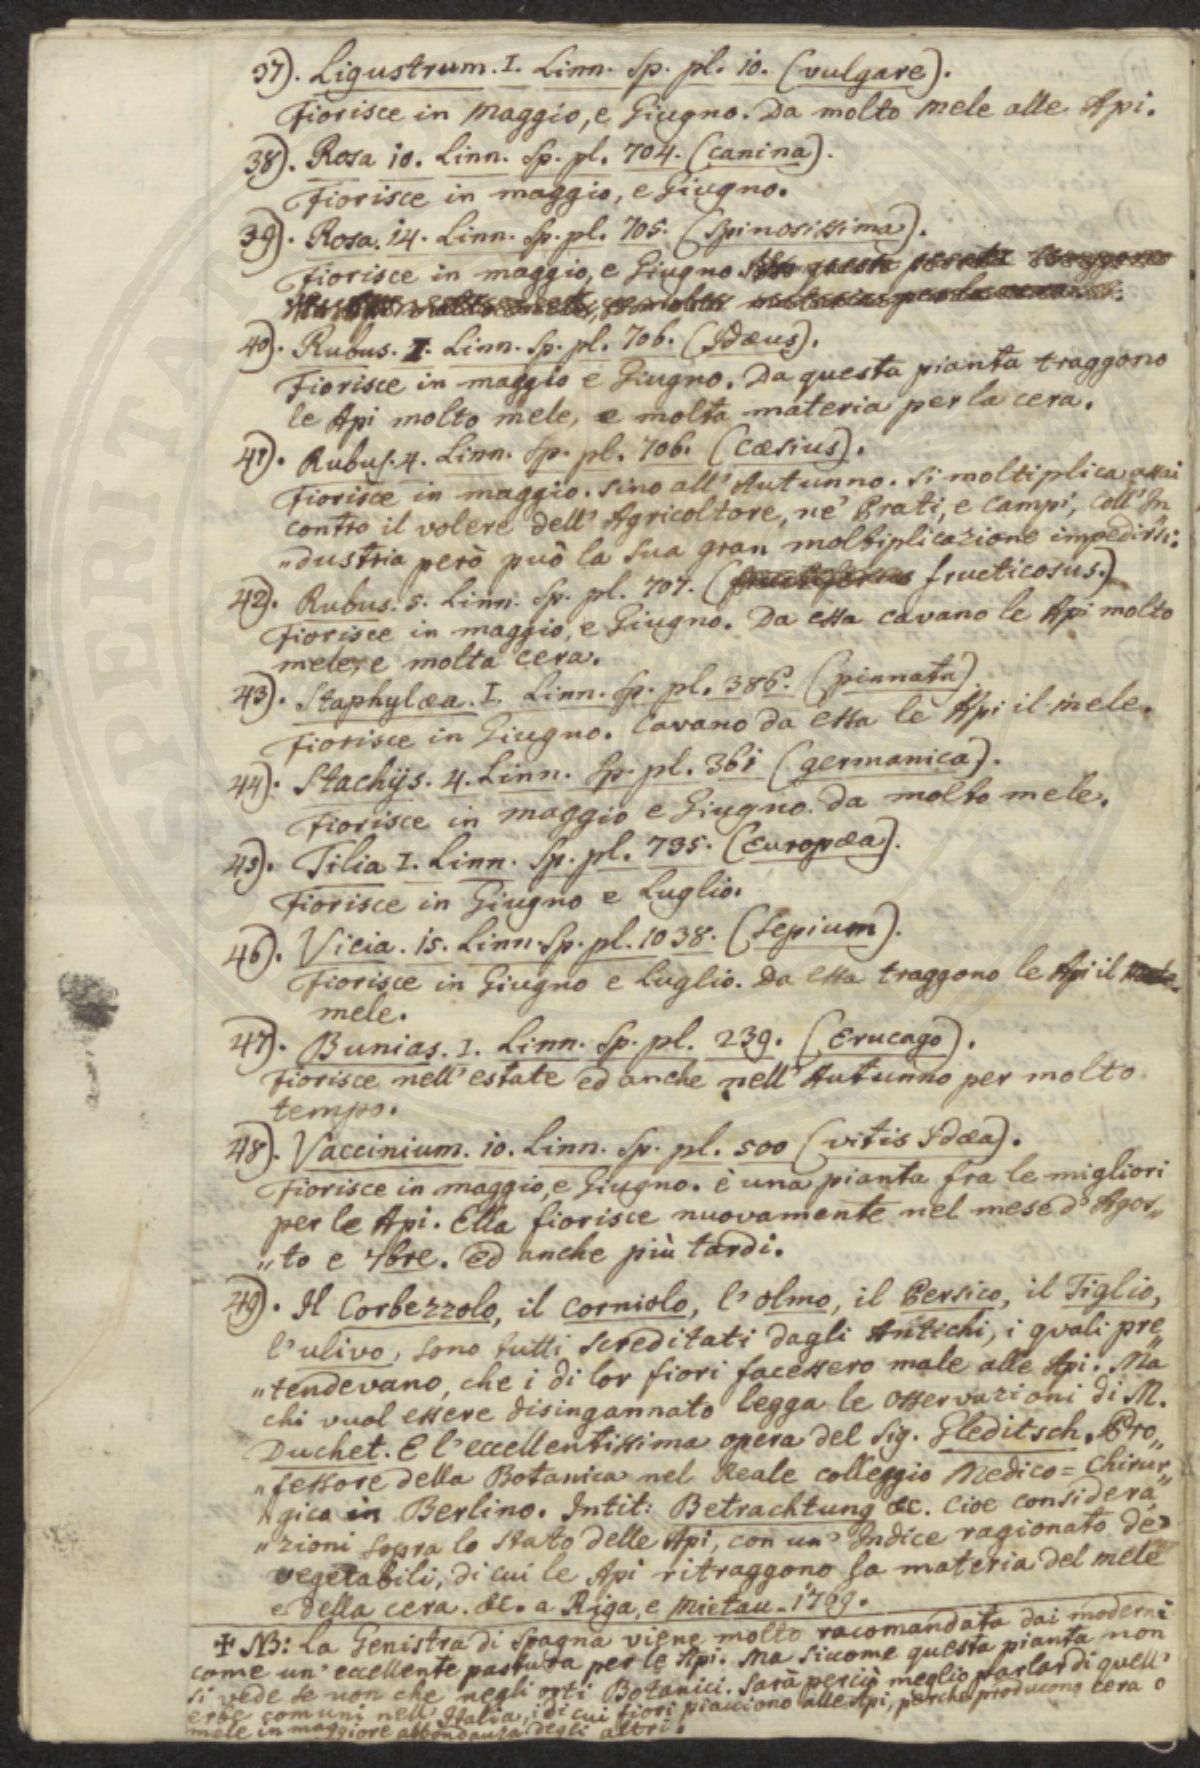 37). Ligustrum. I. Linn. Sp. pl. 10. (vulgare).
Fiorisce in Maggio, e Giugno. Da molto mele alle Api.
38). Rosa 10. Linn. Sp. pl. 704. (canina).
Fiorisce in maggio, e Giugno.
39). Rosa. 14. Linn. Sp. pl. 705. (Spinosissima).
Fiorisce in maggio, e Giugno
40). Rubus. I. Linn. Sp. pl. 706. (Idæus).
Fiorisce in maggio e Giugno. Da questa pianta traggono
le Api molto mele, e molta materia per la cera.
41). Rubus. 4. Linn. Sp. pl. 706. (Cæsius).
Fiorisce in maggio. sino all' Autunno. Si moltiplica assai
contro il volere dell' Agricoltore, ne' Prati, e Campi, Coll' In
„dustria però può la sua gran moltiplicazione impedirsi.
42). Rubus. 5. Linn. Sp. pl. 707. (fructicosus.)
Fiorisce in maggio, e Giugno. Da essa cavano le Api molto
mele, e molta cera.
43). Staphylæa. I. Linn. Sp. pl. 386. (pinnata).
Fiorisce in Giugno. Cavano da essa le Api il mele.
44). Stachijs. 4. Linn. Sp. pl. 361 (germanica).
Fiorisce in maggio e Giugno. da molto mele.
45). Tilia I. Linn. Sp. pl. 735. (Europæa).
Fiorisce in Giugno e Luglio.
46). Vicia. 15. Linn. Sp. pl. 1038. (Sepium).
Fiorisce in Giugno e Luglio. Da essa traggono le Api il
mele.
47). Bunias. I. Linn. Sp. pl. 239. (Erucago).
Fiorisce nell' estate ed anche nell' Autunno per molto
tempo.
48). Vaccinium. 10. Linn. Sp. pl. 500 (vitis Idæa).
Fiorisce in maggio, e Giugno. è una pianta fra le migliori
per le Api. Ella fiorisce nuovamente nel mese d' Agos„
„to e 7bre. ed anche più tardi.
49). Il Corbezzolo, il corniolo, l' olmo, il Persico, il Tiglio,
l' ulivo, sono tutti screditati dagli Antichi, i quali pre„
„tendevano, che i di lor fiori facessero male alle Api. Ma
chi vuol essere disingannato legga le osservazioni di M.
Duchet. E l' eccellentissima opera del Sig. Gleditsch. Pro„
„fessore della Botanica nel Reale colleggio Medico=Chirur„
gico in Berlino. Intit: Betrachtung &c. Cioe considera„
„zioni sopra lo stato delle Api, con un' Indice ragionato de'
vegetabili, di cui le Api ritraggono la materia del mele
e della cera. &c. a Riga, e Mietau. 1769.
✝ NB: La Genistra di Spagna viene molto racomandata dai moderni
come un' eccellente pastura per le Api. Ma siccome questa pianta non
si vede se non che negli orti Botanici. Sarà perciò meglio parlar di quell'
erbe comuni nell' Italia, i di cui fiori piacciono alle Api, perche producono cera o
mele in maggiore abbondanza degli altri.